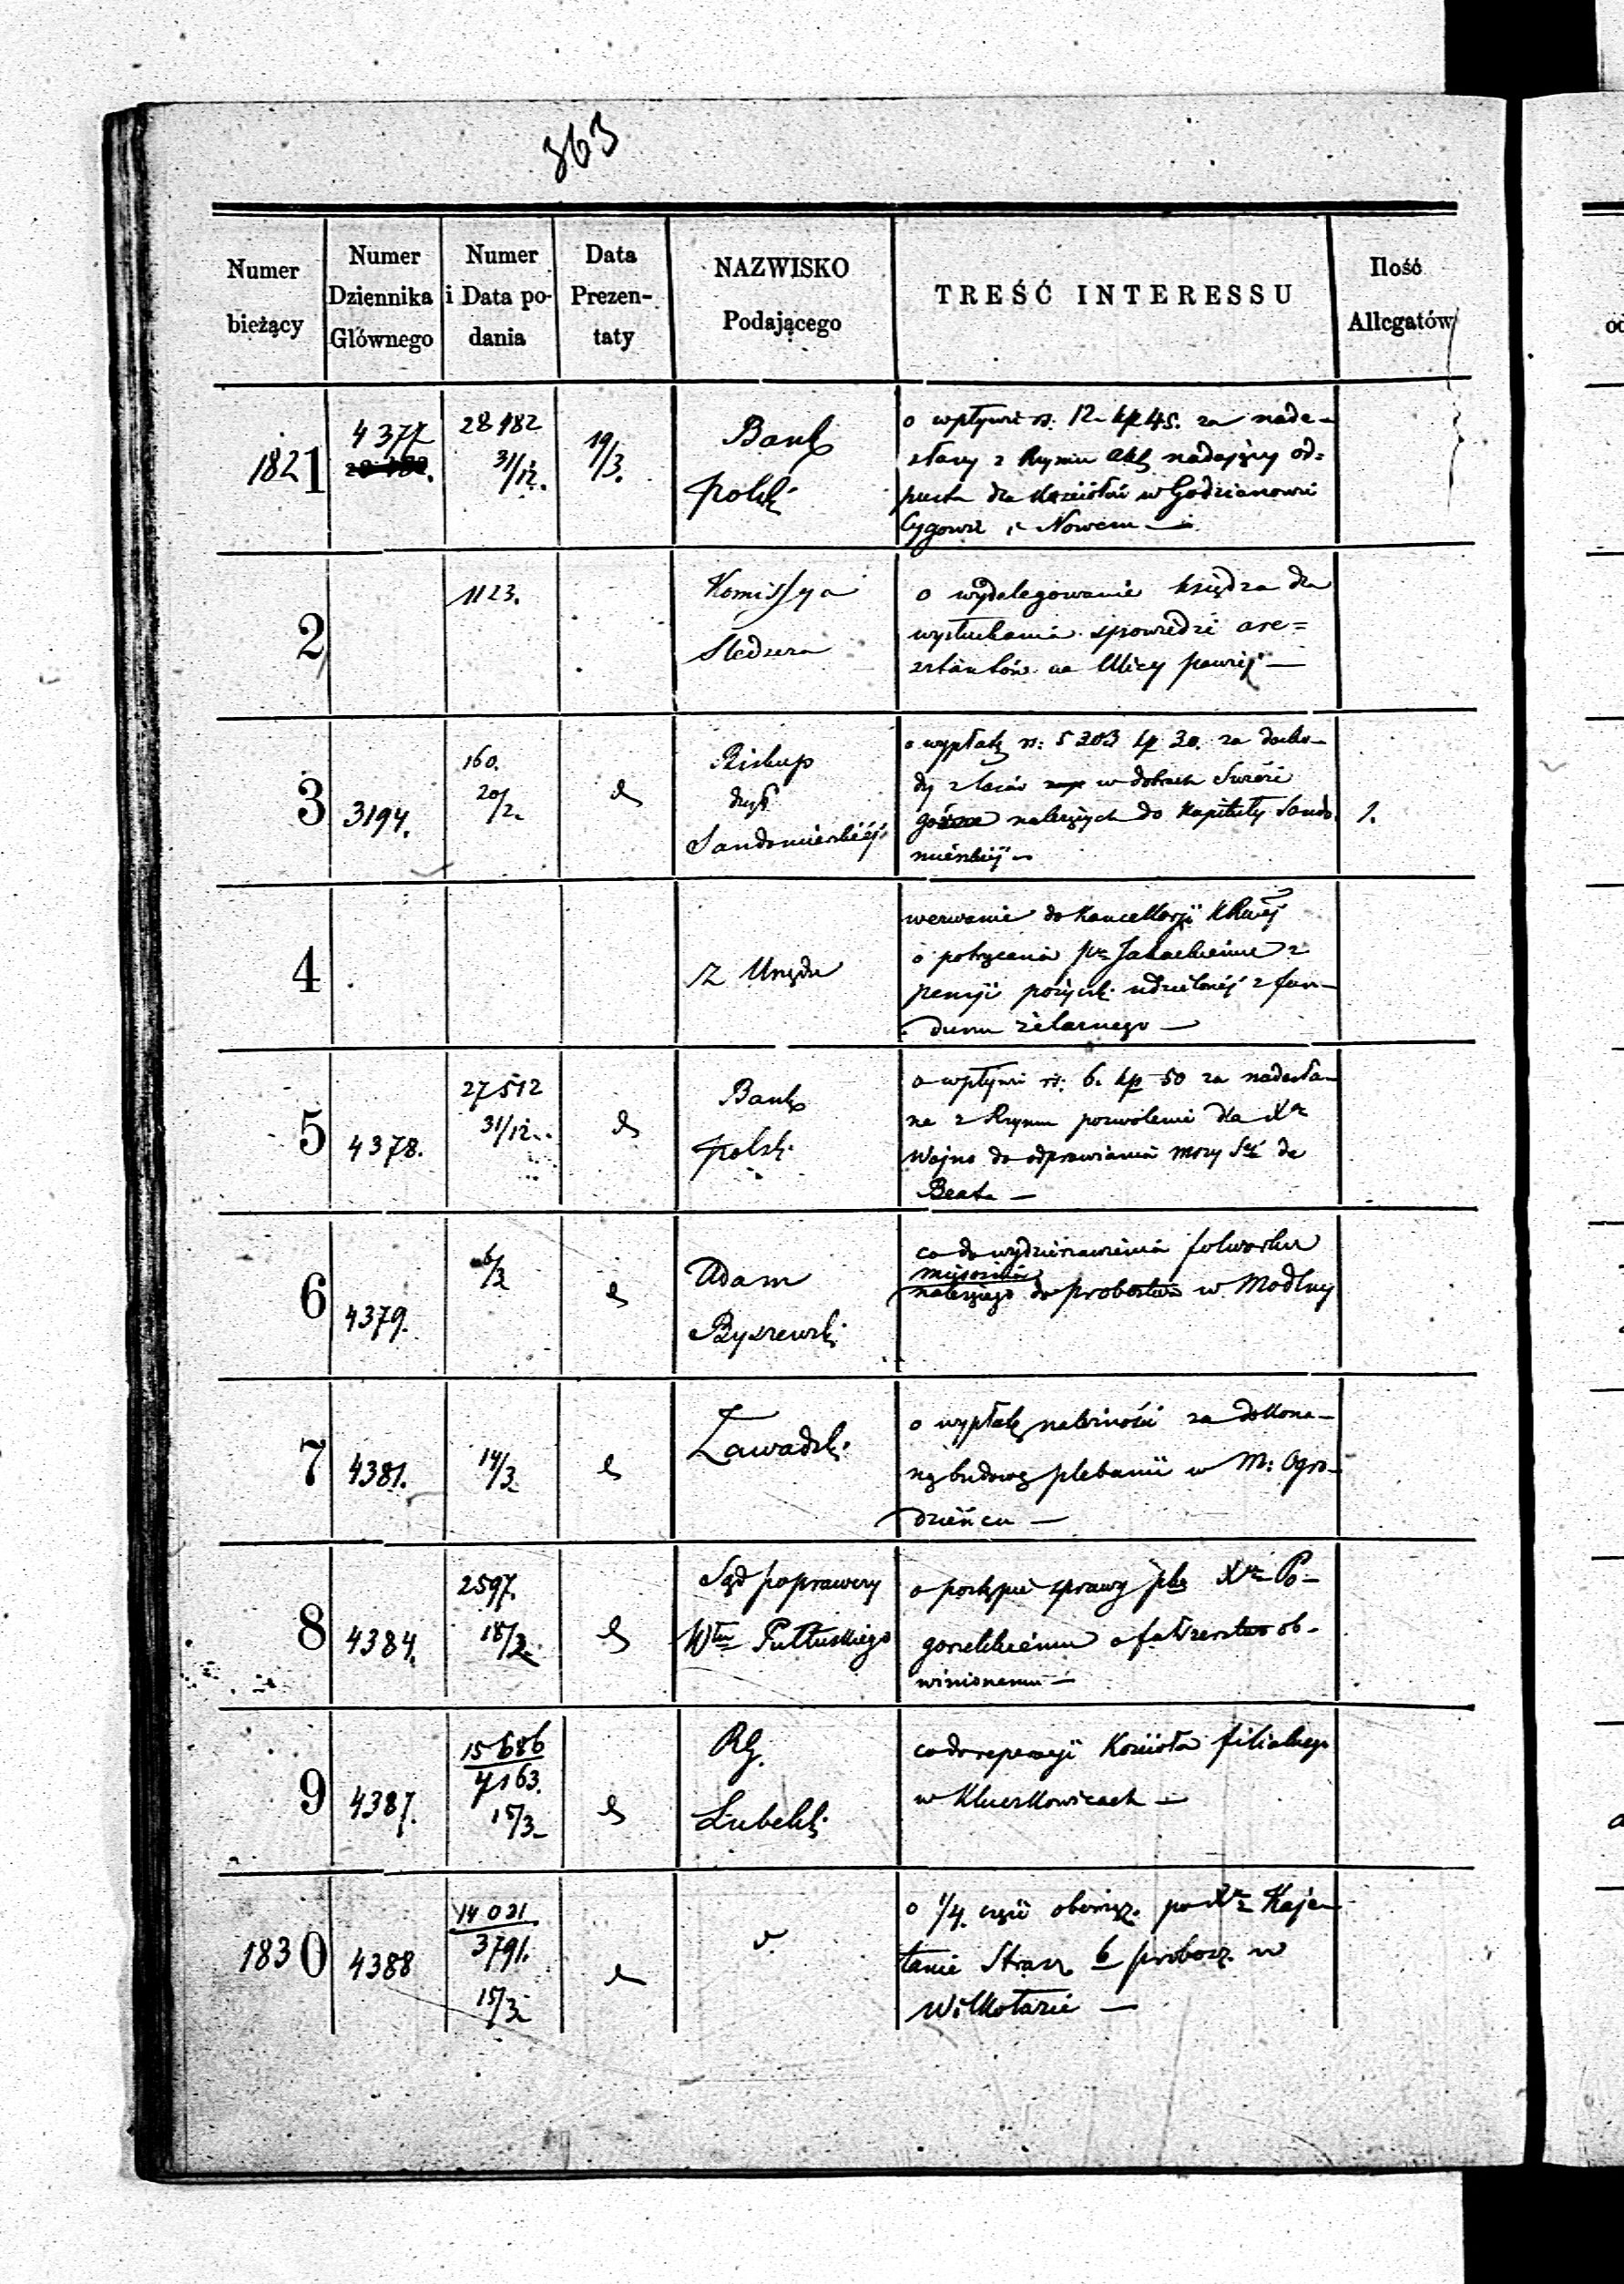 363
Numer bieżący
Numer Dziennika Głównego
Numer i Data podania
Data Prezentaty
NAZWISKO Podającego
TREŚĆ INTERESSU
Ilość Allegatów
1821
4377
28482
31/12.
19/3.
Bank
polski
o wpływie rs. 12 kp 45. za nade-
słany z Rzymu akt nadający od=
pusta dla Kościołów w Godzianowie
i Nowem —
2
1123.
Komissya
Śledcza
o wydelegowanie księdza dla
wysłuchania spowiedzi are=
sztantów na Ulicy pawiej —
3
3194.
160.
20/2.
Biskup
dyec
Sandomierskiéj
o wypłatę rs: 5203 kp 30. za docho-
dy z lasów w dobrach Świeże
górne należących do Kapituły Sando
mierskiéj —
1.
4
Z Urzędu
wezwanie do Kancellaryi
o potrącenia z
pensyi pożyczki udzielonéj z fun-
duszu żelaznego —
5
4378.
27512
31/12.
Bank
polski
o wpływie rs: 6. kp 50 za nadesła-
ne z Rzymu pozwolenie dla Xa
Wojno do odprawiania mszy Stéj de
Beata —
6
4379.
6/3
Adam
Byszewski
co do wydzierżawienia folwarku
należącego do probostwa w Modlny
7
4381.
14/3
Zawadzki
o wypłatę należności za dokona-
ną budowę plebanii w M: Ogro-
dzieńcu —
8
4384.
2597.
18/3.
Sąd poprawczy
Włu Pułtuskiego
o postępie sprawy pko Xu Po-
gorzelskiemu o fałszerstwo ob-
winionemu —
9
4387.
15686
4163.
15/3
RG.
Lubelski
co do reperacyi Kościoła filialnego
w Kluczkowicach —
1830
4388
14021
3791.
15/3
o 1/4. części obowiąz. po Xu Kaje-
tanie Strasz b probosz. w
Wilkołazie —